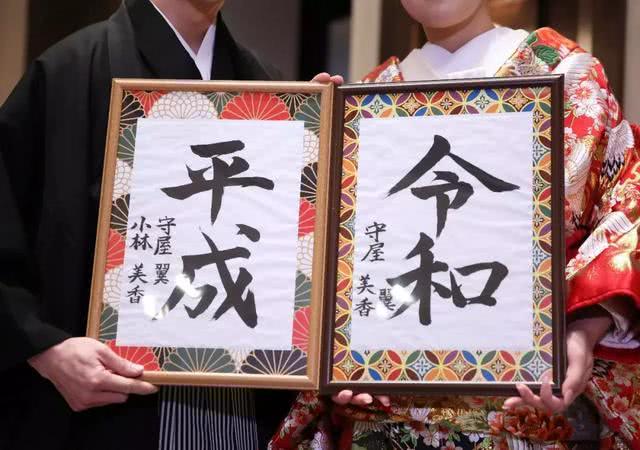 平成
守屋 翼
小林 美香
令和
守屋 翼
美香